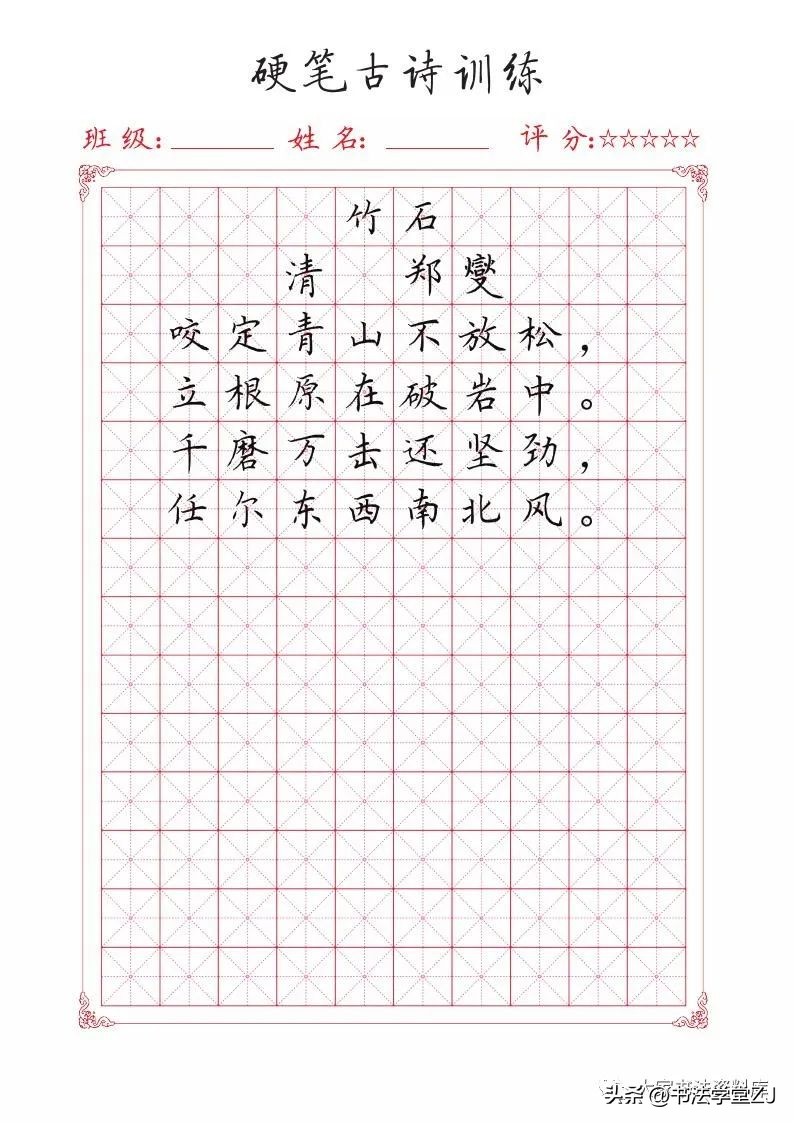 硬笔古诗训练
班级：________ 姓名：________ 评分：☆☆☆☆☆
竹石
清 郑燮
咬定青山不放松，
立根原在破岩中。
千磨万击还坚劲，
任尔东西南北风。
头条@书法学堂ZJ